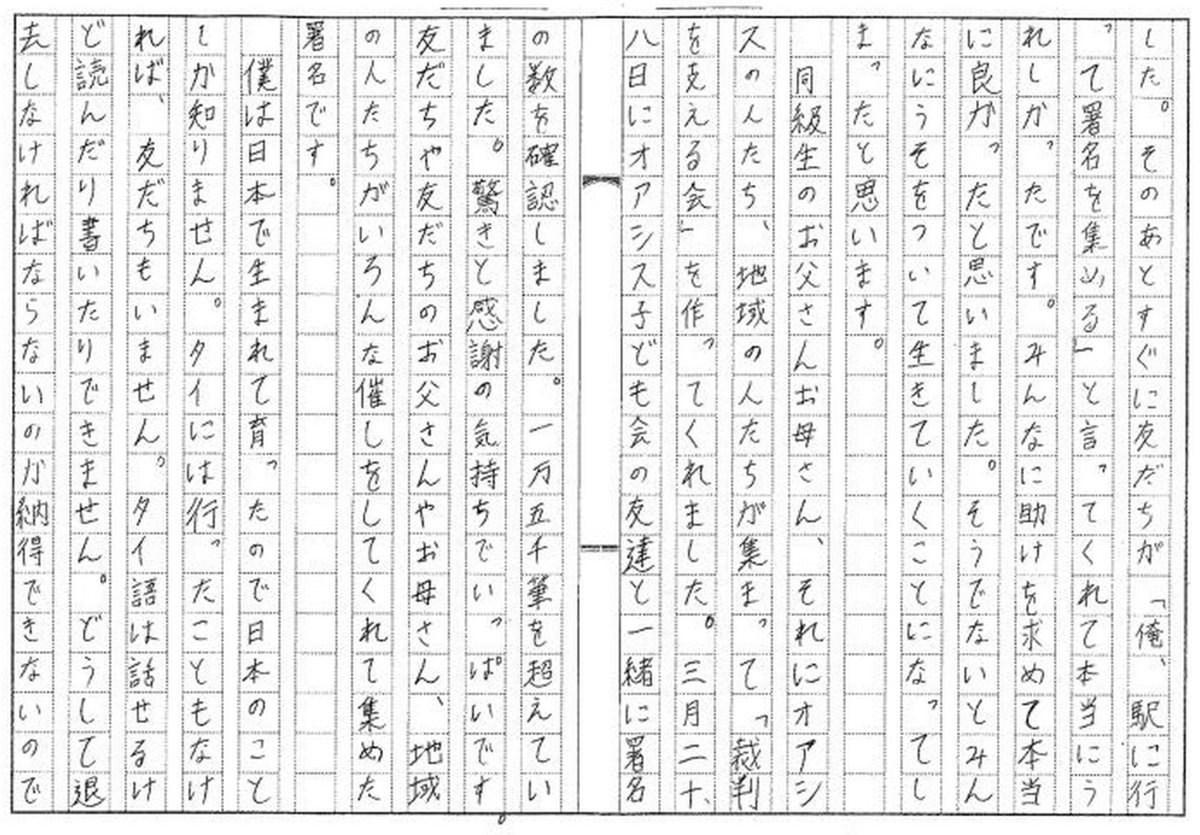 した。そのあとすぐに友だちが「俺、駅に行
って署名を集める」と言ってくれて本当にう
れしかったです。みんなに助けを求めて本当
に良かったと思いました。そうでないとみん
なにうそをついて生きていくことになってし
まったと思います。
同級生のお父さんお母さん、それにオアシ
スの人たち、地域の人たちが集まって「裁判
を支える会」を作ってくれました。三月二十
八日にオアシス子ども会の友達と一緒に署名
の数を確認しました。一万五千筆を超えてい
ました。驚きと感謝の気持ちでいっぱいです。
友だちや友だちのお父さんやお母さん、地域
の人たちがいろんな催しをしてくれて集めた
署名です。
僕は日本で生まれて育ったので日本のこと
しか知りません。タイには行ったこともなけ
れば、友だちもいません。タイ語は話せるけ
ど読んだり書いたりできません。どうして退
去しなければならないのか納得できないので